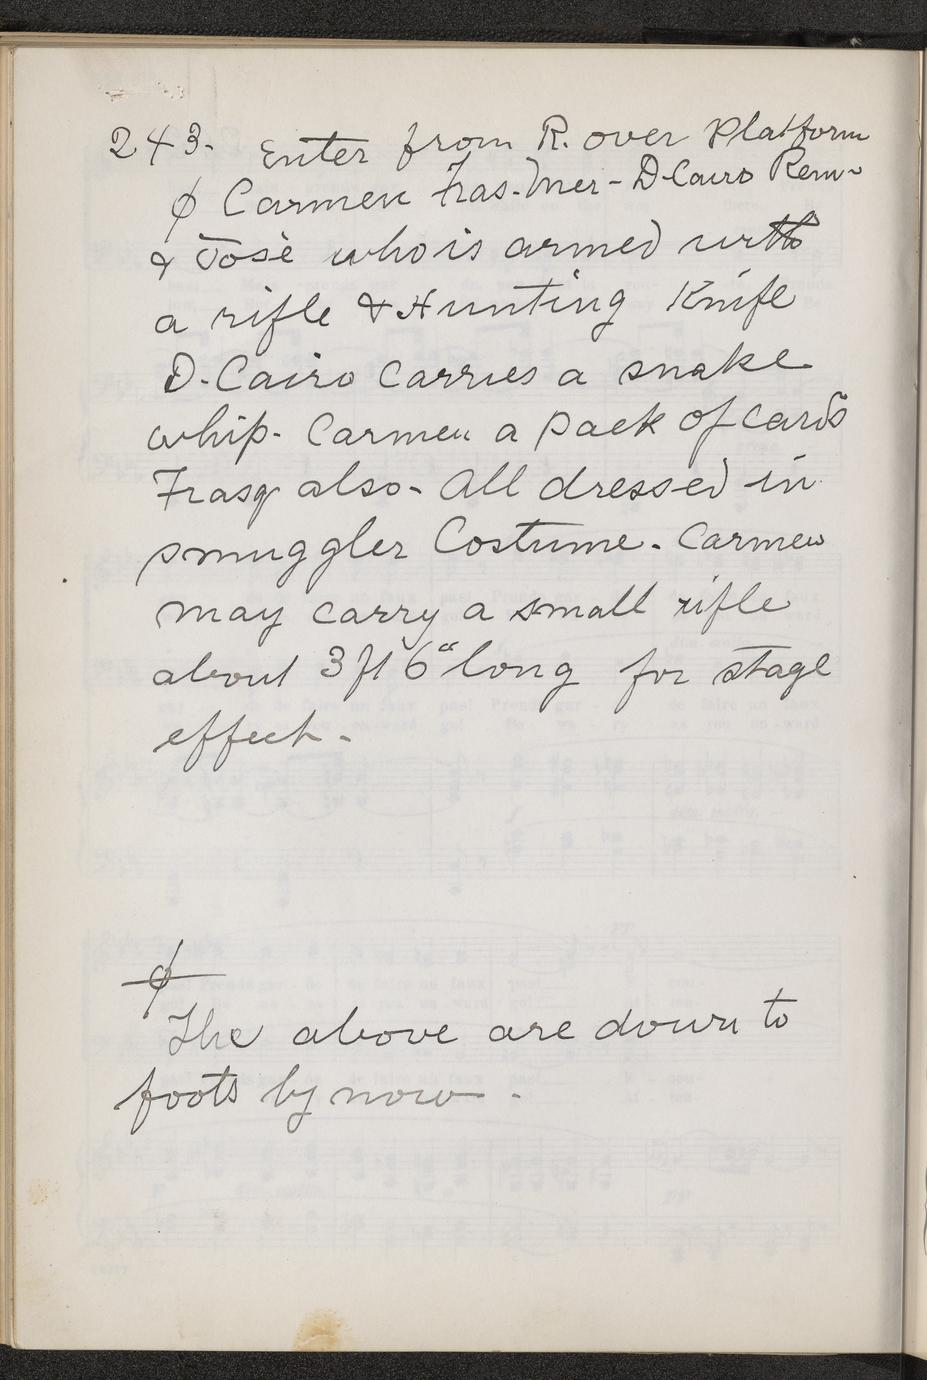 243. Enter from R. over Platform
φ Carmen Fras. Mer - D-Cairo Rem-
& José who is armed with
a rifle & Hunting Knife
D-Cairo carries a snake
whip. Carmen a pack of cards
Frasq also - All dressed in
smuggler Costume. Carmen
may carry a small rifle
about 3 ft 6" long for stage
effect.
φ
The above are down to
foots by now.